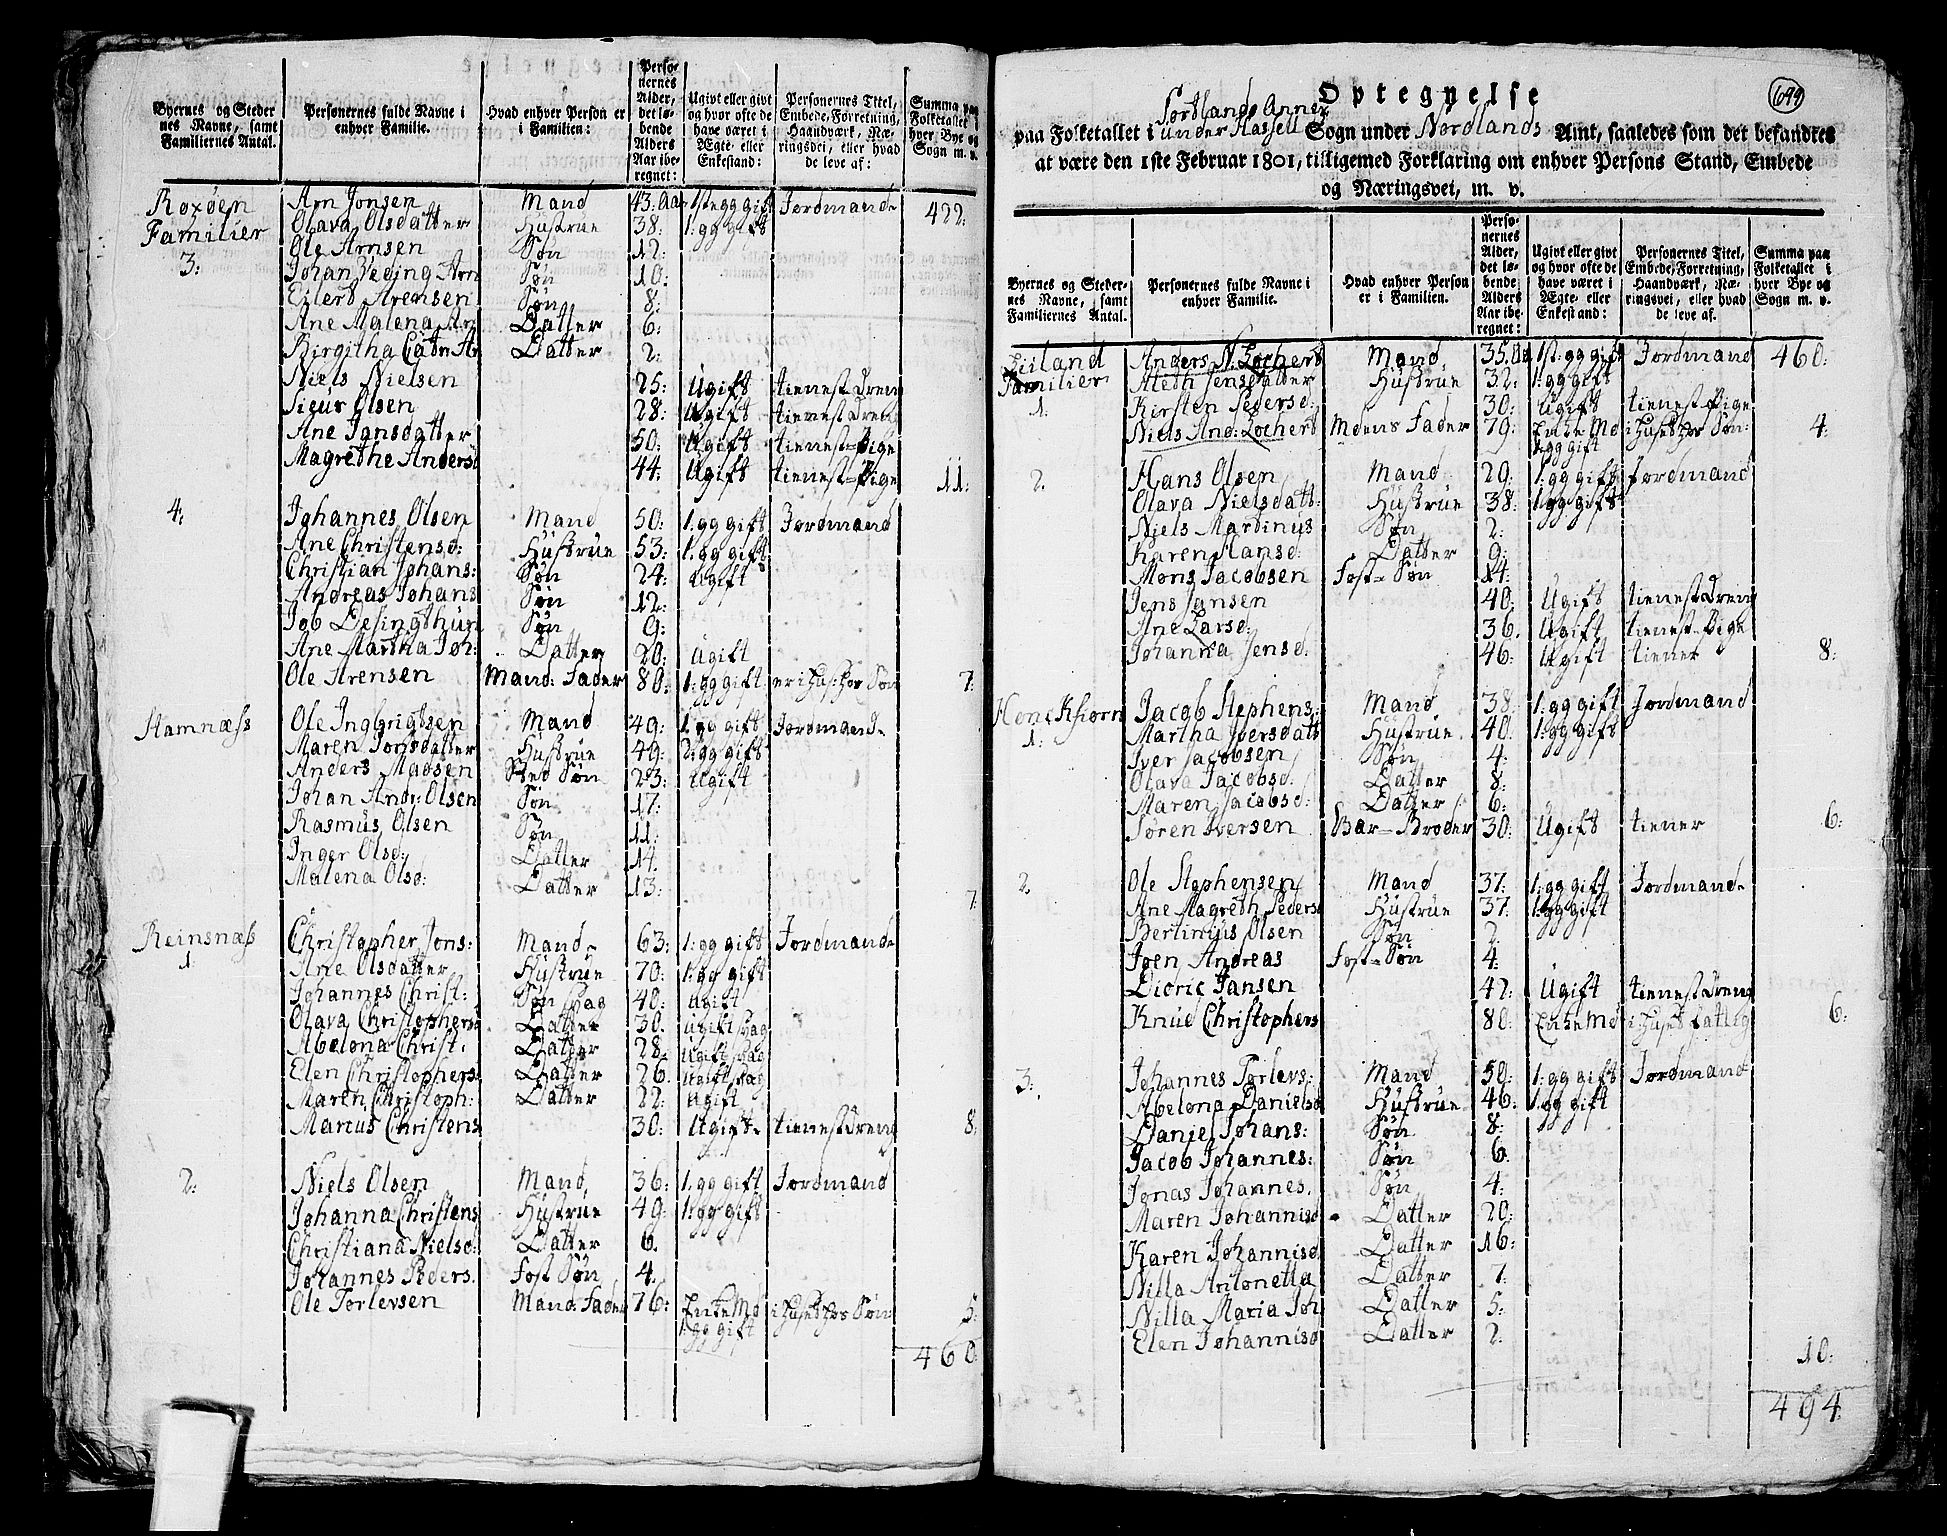 Byernes og Steder
nes Navne, samt
Familiernes Antal.
Personernes fulde Navne i
enhver Familie.
Hvad enhver Person er
i Familien:
Perso-
nernes
Alder,
det lø-
bende
Alders
Aar ibe-
regnet:
Ugivt eller givt
og hvor ofte de
have været i
Ægte- eller
Enkestand:
Personernes Titel,
Embede, Forretning,
Haandværk, Næ-
ringsvei, eller hvad
de leve af:
Summa paa
Folketallet i
hver Bye og
Sogn m. v.
Roxøen Arn Jonsen Mand 43. Aar 1ste gg gift Jordmand 422:
Familier Olava Olsdatter Hustrue 38: 1: gg gift
Ole Arnsen Søn 12:
3: Johan Arn Søn 10:
Eilerd Arensen Søn 8:
Ane Malena Arn Datter 6:
Birgitha Cathr Ar Datter 2:
Niels Nielsen 25: Ugift tienestDreng
Sigur Olsen 28: Ugift tienestDreng
Ane Jansdatter 50: Ugift tienest=Pige
Magrethe Andersd 44: Ugift tienest=Pige 11:
4: Johannes Olsen Mand 50: 1: gg gift Jordmand
Ane Christensd: Hustrue 53: 1: gg gift
Christian Johans: Søn 24: Ugift
Andreas Johans Søn 12:
Job Søn 9:
Ane Martha Joh: Datter 20: Ugift
Ole Arensen Mand: Fader 80: 1: gg gift er i Hus: hos Søn 7:
Hamnæss Ole Ingbrigtsen Mand 49: 1: gg gift Jordmand
Maren Jonsdatter Hustrue 49: 2: gg gift
Anders Madsen Sted Søn 23: Ugift
Johan Andr: Olsen Søn 17:
Rasmus Olsen Søn 11:
Inger Olsd: Datter 14.
Malena Olsd: Datter 13: 7
Reinsnæss Christopher Jons: Mand 63: 1: gg gift Jordmand
1. Ane Olsdatter Hustrue 70: 1: gg gift
Johannes Christ: Søn svag 40: Ugift
Olava Christophersd Datter 30. Ugift svag
Abelona Christ: Datter 28: Ugift svag
Elen Christophers: Datter 26. Ugift svag
Maren Christoph: Datter 22: Ugift
Marcus Christens 30: Ugift tienestDreng 8:
2: Niels Olsen Mand 36: 1: gg gift Jordmand
Johanna Christens Hustrue 49: 1: gg gift
Christiana Nielsd: Datter 6.
Johannes Peders. Fost Søn 4.
Ole Torlevsen Mand: Fader 76: Enke Md i Huset hos Søn 5:
1: gg gift
460
699
Optegnelse
paa Folketallet i Sortlands Annex
under Hassell Sogn under Nordlands Amt, saaledes som det befandtes
at være den 1ste Februar 1801, tilligemed Forklaring om enhver Persons Stand, Embede
og Næringsvei, m. v.
Byernes og Steder-
nes Navne, samt
Familiernes Antal.
Personernes fulde Navne i
enhver Familie.
Hvad enhver Person
er i Familien.
Perso-
nernes
Alder,
det lø-
bende
Alders
Aar ibe-
regnet:
Ugivt eller givt
og hvor ofte de
have været i
Ægte- eller
Enkestand:
Personernes Titel,
Embede, Forretning,
Haandværk, Næ-
ringsvei, eller hvad
de leve af.
Summa paa
Folketallet i
hver Bye og
Sogn m. v.
Liiland Anders N: Lochert Mand 35. Aar 1st: gg gift Jordmand 460:
Familier Aleth Jensdatter Hustrue 32: 1: gg gift
1: Kirsten Pedersd: 30: Ugift tienest=Pige
Niels And: Lochert Mdens Fader 79: Enke Md i Huset hos Søn: 4:
1: gg gift
2. Hans Olsen Mand 29: 1: gg gift Jordmand
Olava Nielsdatt: Hustrue 38: 1: gg gift
Niels Martinus Søn 2:
Karen Hansd: Datter 9:
Mons Jacobsen Fost=Søn 14:
Jens Jansen 40: Ugift tienestDreng
Ane Larsd: 36. Ugift tienest=Pige
Johanna Jensd: 46: Ugift tiener 8:
Jacob Stephens: Mand 38: 1: gg gift Jordmand
1: Martha Iversdatt Hustrue. 40. 1: gg gift
Iver Jacobsen Søn 4:
Olava Jacobsd: Datter 8:
Maren Jacobsd: Datter 6:
Søren Iversen Broder 30: Ugift tiener 6:
2 Ole Stephensen Mand 37: 1: gg gift Jordmand
Ane Magreth Pedersd Hustrue 37: 1: gg gift
Bertinius Olsen Søn 2:
Joen Andreas Fost=Søn 4:
Didric Jansen 42: Ugift tienestDreng
Knud Christophers 80: Enke Md i Huset fattig 6:
3: Johannes Torlevs: Mand 50: 1: gg gift Jordmand
Abelona Danielsd Hustrue 46: 1: gg gift
Daniel Johans: Søn 8:
Jacob Johannes: Søn 6:
Jonas Johannes. Søn 4:
Maren Johannisd Datter 20:
Karen Johannisd Datter 16:
Nilla Antonetta Datter 7
Nilla Maria Joh Datter 5:
Elen Johannisd Datter 2: 10:
494: